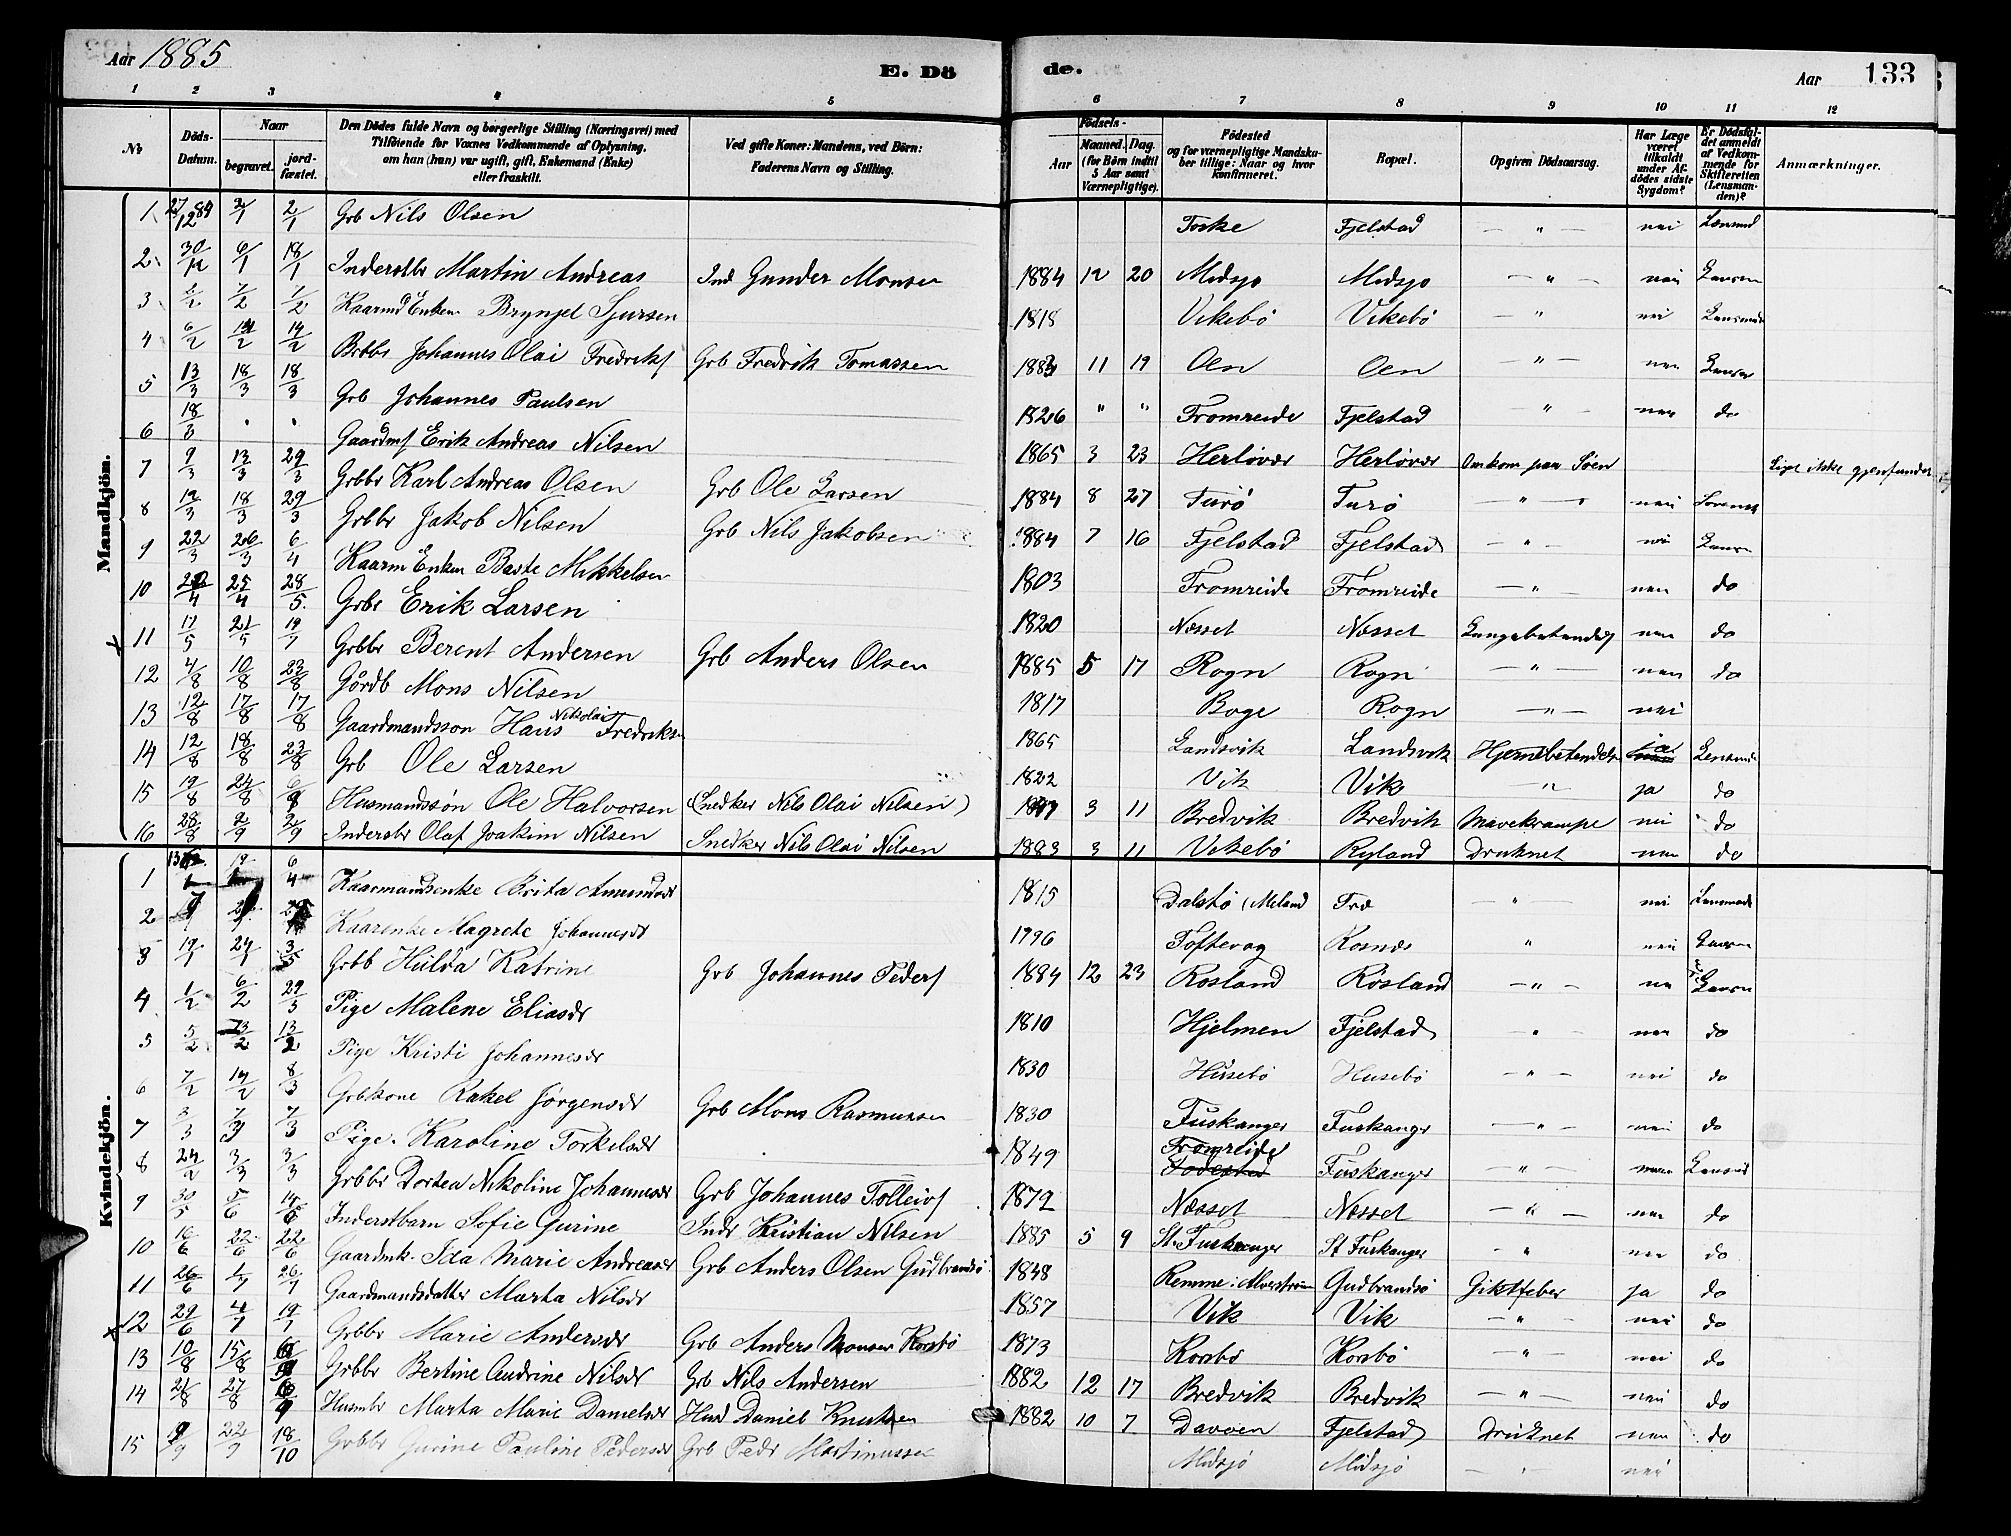 Aar 1885
E. Dö
de.
Aar
133
1 2 3 4 5
6 7 8 9 10 11 12
No
Döds-Datum.
Naar
begravet.
jord-fæstet.
Den Dödes fulde Navn og borgerlige Stilling (Næringsvei) med
Tilföiende for Voxnes Vedkommende af Oplysning,
om han (hun) var ugift, gift, Enkemand (Enke)
eller fraskilt.
Ved gifte Koner: Mandens, ved Börn:
Faderens Navn og Stilling.
Födsels-
Aar
Maaned. Dag.
(for Börn indtil
5 Aar samt
Værnepligtige).
Födested
og for værnepligtige Mandska-
ber tillige: Naar og hvor
konfirmeret.
Bopæl.
Opgiven Dödsaarsag.
Har Læge
været
tilkaldt
under Af-
dödes sidste
Sygdom?
Er Dödsfal-
det anmeldt
af Vedkom-
mende for
Skifteretten
(Lensman-
den)?
Anmærkninger.
Mandkjön.
1 27/12 84 2/1 2/1 Grb Nils Olsen Toske Fjelstad — " — nei Lensmd
2 30/12 6/1 18/1 Inderstbr Martin Andreas Ind Gunder Monsen 1884 12 20 Midsjo Midsjo — " — nei Lensm
3 1/2 7/2 7/2 Kaarmd Enkem Brynjel Sjursen 1818 Vikebö Vikebö — " — nei Lensmnd
4 6/2 14/2 14/2 Johannes Olai Fredriks Grb Fredrik Tomassen 1883 11 19 Oen Oen — " — nei Lensm
5 13/3 18/3 18/3 Grb Johannes Paulsen 1826 " " Fromreide Fjelstad — " — nei do
6 18/3 " " Gaardm Erik Andreas Nilsen 1865 3 23 Herlövær Herlövær Omkom paa Söen Liget ikke gjenfundet
7 9/3 13/3 29/3 Grbbr Karl Andreas Olsen Grb Ole Larsen 1884 8 27 Turö Turö — " — nei Lensmd
8 12/3 18/3 29/3 Grbbr Jakob Nilsen Grb Nils Jakobsen 1884 7 16 Fjelstad Fjelstad — " — nei Lensm
9 22/3 26/3 6/4 Kaarm Enkem Baste Mikkelsen 1803 Fromreide Fromreide — " — nei do
10 22/4 25/4 28/5 Grbr Erik Larsen 1820 Næsset Næsset Lungebetændels nei do
11 17/5 21/5 19/7 Grbbr Berent Andersen Grb Anders Olsen 1885 5 17 Rogn Rogn — " — nei do
12 4/8 10/8 23/8 Gårdb Mons Nilsen 1817 Boge Rogn — " — nei
13 12/8 17/8 17/8 Gaardmandsson Hans Nikolai Fredriksen 1865 Landsvik Landsvik Hjernebetendels ja Lensmnd
14 12/8 18/8 23/8 Grb Ole Larsen 1822 Vik Vik " ja do
15 19/8 24/8 6/9 Husmandssön Ole Halvorsen (Snedker Nils Olai Nilsen) 3 11 Bredvik Bredvik Mavekrampe nei do
16 28/8 2/9 2/9 Inderstbr Olaf Joakim Nilsen Snedker Nils Olai Nilsen 1883 3 11 Vikebö Ryland Druknet nei do
Kvindekjön.
1 6/4 Kaarmandsenke Brita Amundsdr 1815 Dalstö (Meland Træ — " — nei Lensmnd
2 Kaarenke Magrete Johannesdr 1796 Toftevag Rosnes " nei Lensm
3 19/1 24/1 3/5 Grbb Hulda Katrine Grb Johannes Peders 1884 12 23 Rosland Rösland — " — nei Lensm
4 1/2 6/2 29/3 Pige Malene Eliasdr 1810 Hjelmen Fjelstad " nei do
5 5/2 13/2 13/2 Pige Kristi Johannesdr 1830 Husebö Husebö — " — nei do
6 7/2 14/2 8/3 Grbkone Rakel Jörgensdr Grb Mons Rasmussen 1830 Fuskanger Fuskanger — " — nei do
7 3/3 7/3 7/3 Pige Karoline Torkelsdr 1849 Fromreide Fuskanger — " — nei Lensmd
8 24/2 3/3 3/3 Grbbr Dortea Nikoline Johannesdr Grb Johannes Tolleivs 1872 Næsset Næsset — " — nei do
9 30/5 5/6 14/6 Inderstbarn Sofie Gurine Indr Kristian Nilsen 1885 5 9 St. Fuskanger St Fuskanger " nei do
10 16/6 22/6 22/6 Gaardmk. Ida Marie Andreasdr Grb Anders Olsen Gudbrandsö 1848 Remme i Alverströmen Gudbrandsö Giktfeber ja do
11 26/6 1/7 26/7 Gaardmandsdatter Marta Nilsdr 1857 Vik Vik — " — nei do
12 29/6 4/7 19/7 Grbbr Marie Andersdr Grb Anders Monsen Korsbö 1873 Korsbö Korsbö — " — nei do
13 10/8 15/8 Grbbr Bertine Andrine Nilsdr Grb Nils Andersen 1882 12 17 Bredvik Bredvik — " — nei do
14 21/8 27/8 Husmbr Marta Marie Danielsdr Husd Daniel Knutsen 1882 10 7 Davoen Fjelstad Druknet nei do
15 9/9 22/9 18/10 Grbbr Gurine Pauline Pedersdr Grb Pedr Martinussen Midsjö Midsjö — " — nei